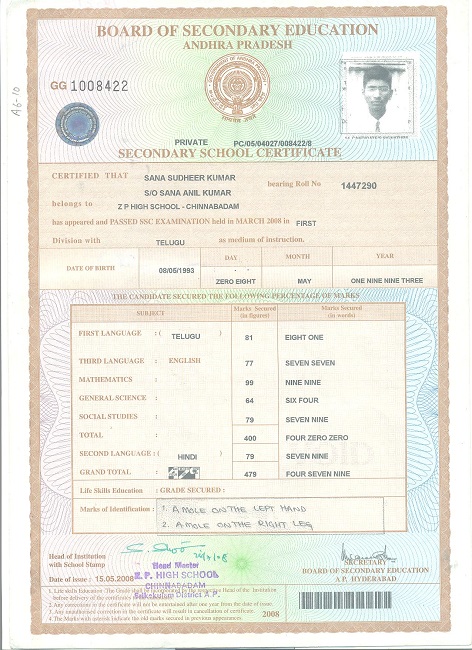 BOARD OF SECONDARY EDUCATION
ANDHRA PRADESH
GG 1008422
A6-10
PRIVATE PC/05/04027/008422/8
SECONDARY SCHOOL CERTIFICATE
CERTIFIED THAT SANA SUDHEER KUMAR bearing Roll No 1447290
S/O SANA ANIL KUMAR
belongs to Z P HIGH SCHOOL - CHINNABADAM
has appeared and PASSED SSC EXAMINATION held in MARCH 2008 in FIRST
Division with TELUGU as medium of instruction.
DATE OF BIRTH 08/05/1993 DAY MONTH YEAR
ZERO EIGHT MAY ONE NINE NINE THREE
THE CANDIDATE SECURED THE FOLLOWING PERCENTAGE OF MARKS
SUBJECT Marks Secured (in figures) Marks Secured (in words)
FIRST LANGUAGE : ( TELUGU ) 81 EIGHT ONE
THIRD LANGUAGE : ENGLISH 77 SEVEN SEVEN
MATHEMATICS : 99 NINE NINE
GENERAL SCIENCE : 64 SIX FOUR
SOCIAL STUDIES : 79 SEVEN NINE
TOTAL : 400 FOUR ZERO ZERO
SECOND LANGUAGE : ( HINDI ) 79 SEVEN NINE
GRAND TOTAL : 479 FOUR SEVEN NINE
Life Skills Education : GRADE SECURED :
Marks of Identification : 1. A MOLE ON THE LEFT HAND
2. A MOLE ON THE RIGHT LEG
Head of Institution
with School Stamp
Head Master
Z. P. HIGH SCHOOL
CHINNABADAM
Srikakulam District A.P.
SECRETARY
A.P. HYDERABAD
Date of issue : 15.05.2008
1. Life skills Education :The Grade shall be incorporated by the respective Head of the Institution
before delivery of the certificates
2. Any corrections in the certificate will not be entertained after one year from the date of issue.
3. Any unauthorised correction in the certificate will result in cancellation of certificate.
4. The Marks with asterisk indicate the old marks secured in previous appearances
2008